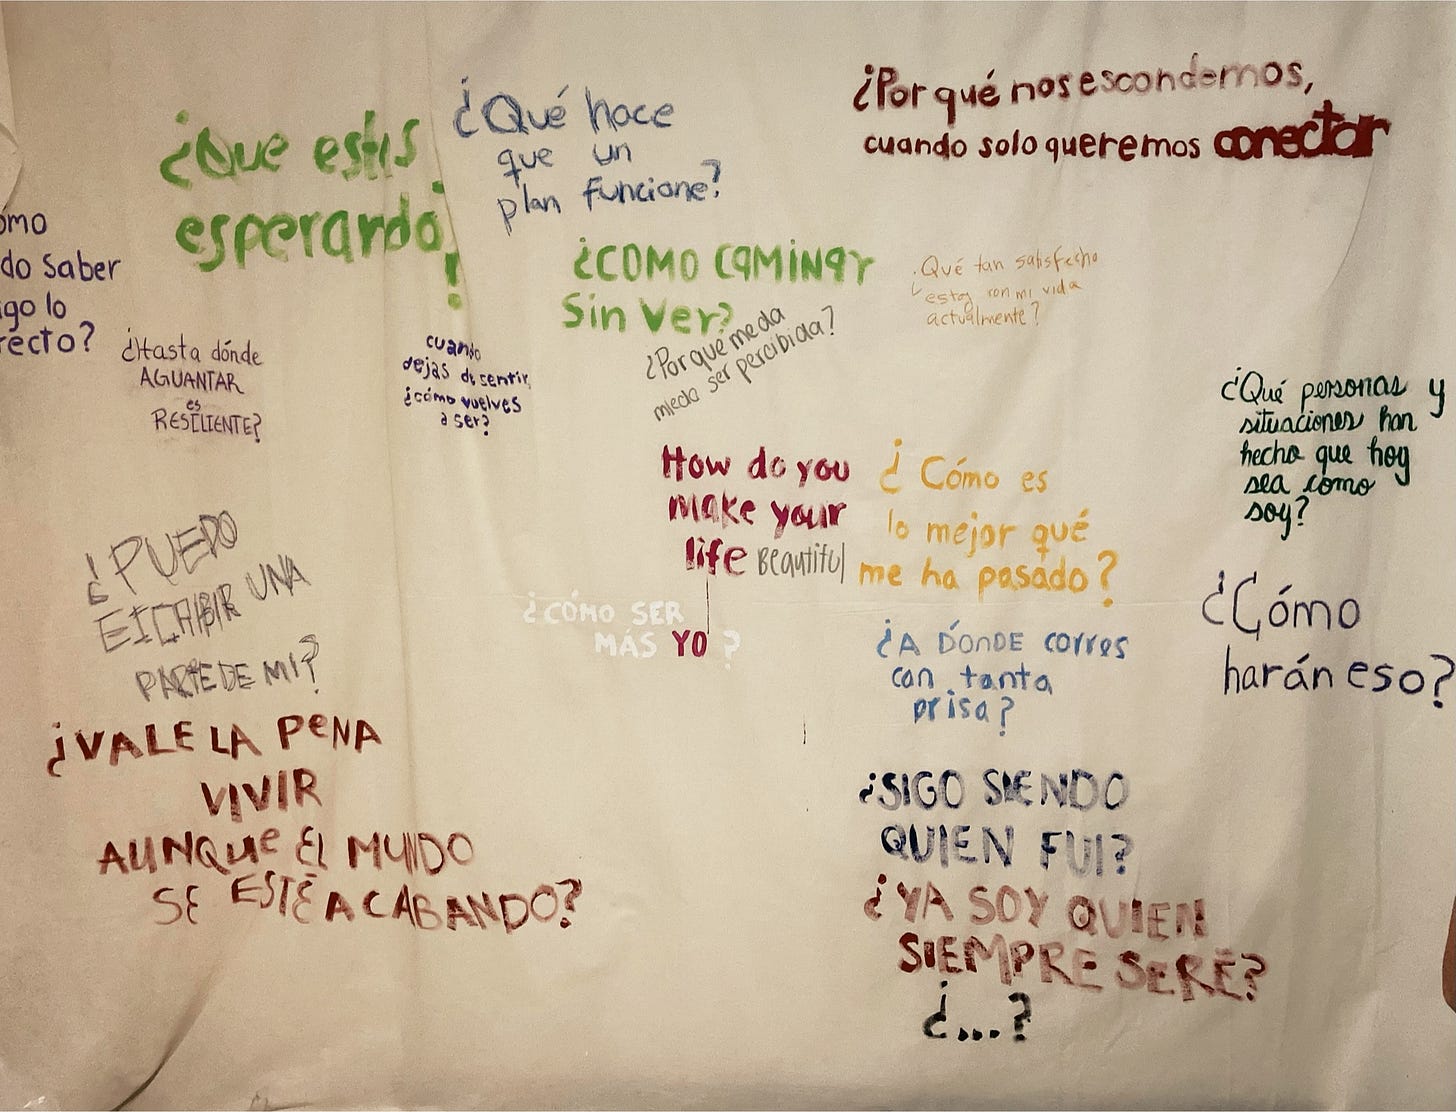 ¿Que estás
esperando?
¿Qué hace
que un
plan funcione?
¿Por qué nos escondemos,
cuando solo queremos conectar
omo
do saber
igo lo
recto?
¿Hasta dónde
AGUANTAR
es
RESILIENTE?
cuando
dejas de sentir,
¿cómo vuelves
a ser?
¿COMO CAMINAr
Sin Ver?
¿Por qué me da
miedo ser percibida?
¿Qué tan satisfecho
estoy con mi vida
actualmente?
¿Qué personas y
situaciones han
hecho que hoy
sea como
soy?
How do you
make your
life Beautiful
¿Cómo es
lo mejor qué
me ha pasado?
¿PUEDO
UNA
PARTE DE MI?
¿CÓMO SER
MÁS YO?
¿A DÓNDE corres
con tanta
prisa?
¿Cómo
harán eso?
¿VALE LA PeNA
VIVIR
AUNQUe El MUNDO
SE ESTÉ ACABANDO?
¿SIGO SIENDO
QUIEN FUI?
¿YA SOY QUIEN
SIEMPRE SERÉ?
¿...?